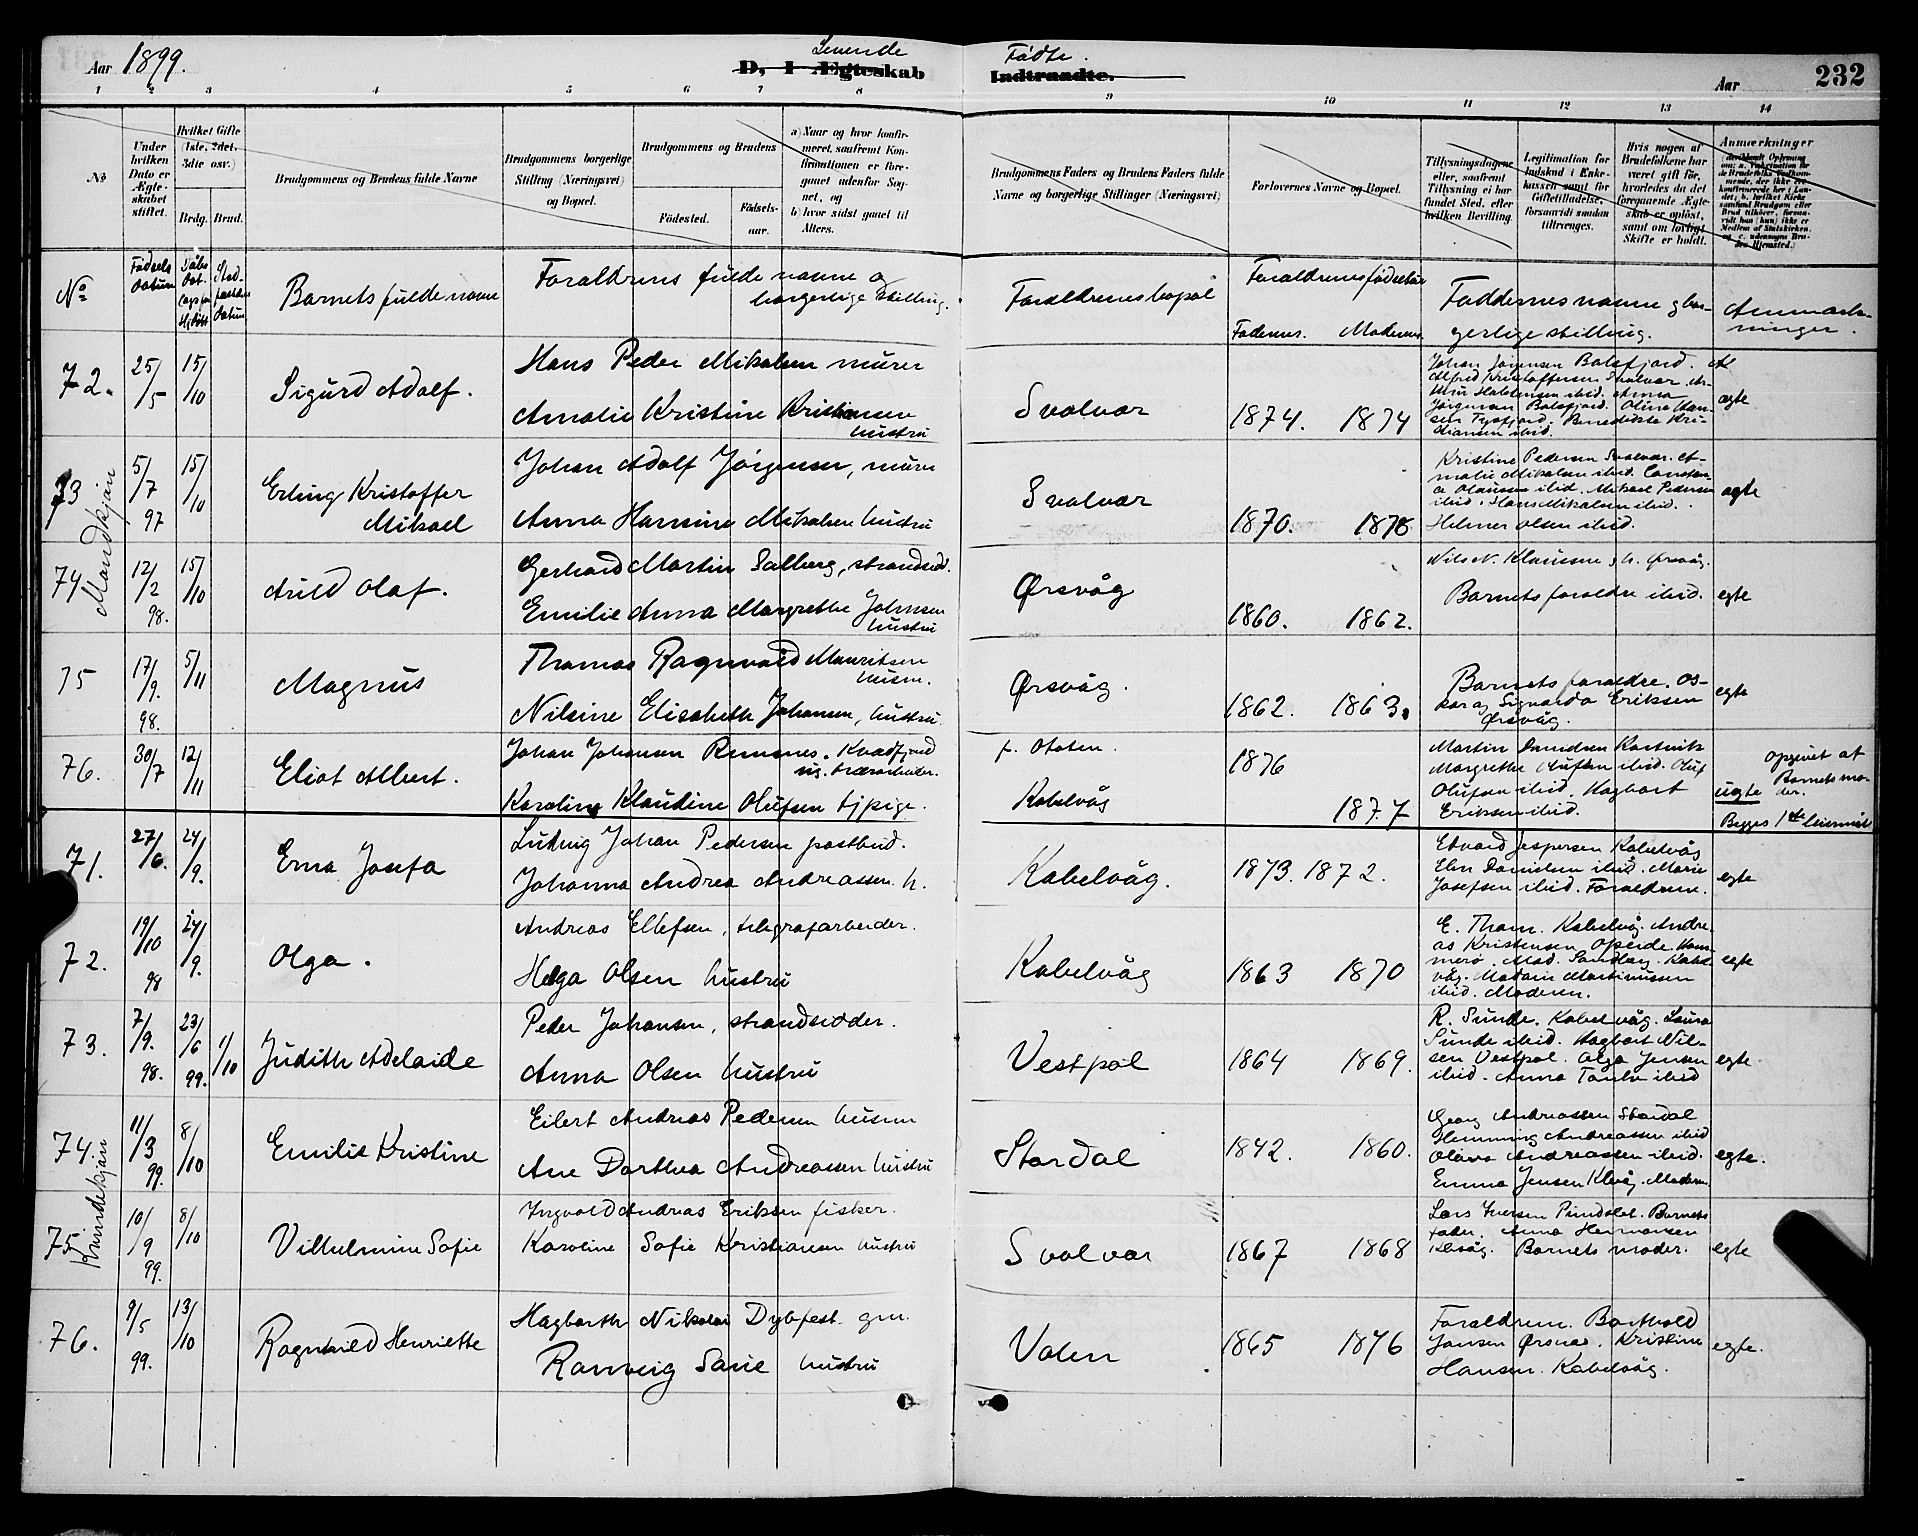 Aar 1899.
Levende Fødte.
D, 1 Ægteskab Indtraadte.
Aar
232
1 2 3 4 5 6 7 8 9 10 11 12 13 14
No
Under hvilken Dato er Ægteskabet stiftet.
Hvilket Gifte (1ste, 2det, 3die osv.)
Brdg. Brud.
Brudgommens og Brudens fulde Navne
Brudgommens borgerlige Stilling (Næringsvei) og Bopæl.
Brudgommens og Brudens
Fødested.
Fødselsaar.
a) Naar og hvor konfirmeret, saafremt Konfirmationen er foregaaet udenfor Sognet, og
b) hvor sidst gaaet til Alters.
Brudgommens Faders og Brudens Faders fulde Navne og borgerlige Stillinger (Næringsvei)
Forlovernes Navne og Bopæl.
Tillysningsdagene eller, saafremt Tillysning ei har fundet Sted, efter hvilken Bevilling.
Legitimation for Indskud i Enkekassen samt for Giftetilladelse, forsaavidt saadan tiltrænges.
Hvis nogen af Brudefolkene har været gift før, hvorledes da det foregaaende Ægteskab er opløst, samt om lovligt Skifte er holdt.
Anmerkninger
No Fødsels datum
Barnets fulde navn
Forældrens fulde navne og borgerlige stilling.
Forældrenes bopæl
Forældrenes fødselsaar
Faderens. Moderens.
Faddernes navne og borgerlige stilling.
Anmærkninger.
Mandkjøn
72. 25/5 15/10 Sigurd Adolf.
Hans Peder Mikalsen murer
Amalie Kristine Kristiansen hustru
Svolvær 1874. 1874
Johan Jørgensen Balsfjord.
Alfred Kristoffersen Svolvær.
Jørgensen Balsfjord.
Benedikte Kristiansen ibid.
ægte
73 5/7 97 15/10 Erling Kristoffer Mikael
Johan Adolf Jørgensen, murer
Anna Hansine Mikalsen hustru
Svolvær 1870. 1878
Kristine Pedersen Svolvær. Amalie Mikalsen ibid.
Olaussen ibid. Mikael Pedersen
ibid. Hans Mikalsen ibid.
Helmer Olsen ibid.
ægte
74 12/2 98. 15/10 Arild Olaf.
Gerhard Martin Salberg, strandsid.
Emilie Anna Margrethe Johnsen hustru
Ørsvåg 1860. 1862.
Nils N. Klausen, Ørsvåg.
Barnets forældre ibid.
egte
75 17/9. 98. 5/11 Magnus
Thomas Ragnvald Mauritsen husm.
Nilsine Elisabeth Johansen, hustru.
Ørsvåg. 1862. 1863.
Barnets forældre. Oskar og Sigvarda Eriksen Ørsvåg.
egte
76. 30/7 12/11 Eliot Albert.
Johan Johansen Remmes. Kvædfjord
Karoline Klaudine Olufsen tjpige.
Kabelvåg
1876 1877
Martin Danielsen
Margrethe Olufsen ibid. Oluf
Olufsen ibid. Hagbart
Eriksen ibid.
uegte opgivet af Barnets moder.
Begges 1ste leiermål
Kvindekjøn
71. 27/6. 24/9. Erna Josefa
Ludvig Johan Pedersen postbud.
Johanna Andrea Andreassen h.
Kabelvåg. 1873. 1872.
Edvard Jespersen Kabelvåg
Elen Danielsen ibid. Marie
Josefsen ibid. Forældrene.
egte
72. 19/10 98 24/9. Olga.
Andreas Ellefsen, telegrafarbeider.
Helga Olsen hustru
Kabelvåg 1863 1870
E. Thom. Kabelvåg. Andreas Kristensen Opeide. Hammerø. Mad. Sandberg. Kabelvåg. Madam Martinussen
ibid. Moderen.
egte
73. 7/9. 98. 23/6 99. 1/10 Judith Adelaide
Peder Johansen, strandsidder.
Anna Olsen hustru
Vestpol 1864 1869.
R. Sunde. Kabelvåg. Laura
Sunde ibid. Hagbart Nilsen Vestpol. Olga Jensen
ibid. Anna ibid
egte
74. 11/3 99. 8/10 Emilie Kristine
Eilert Andreas Pedersen husm
Ane Dorthea Andreassen hustru
Stordal 1842. 1860.
Georg Andreassen Stordal
Hemming Andreassen ibid
Olava Andreassen ibid.
Emma Jensen Klevåg. Moderen
egte.
75 10/9 99. 8/10 Vilhelmine Sofie
Ingvald Andreas Eriksen fisker.
Karoline Sofie Kristiansen hustru
Svolvær 1867 1868
Lars Iversen Pundslet. Barnets
fader. Anna Hermansen
Barnets moder.
egte
76. 9/5 99. 13/10 Ragnhild Henriette
Hagbarth Nikolai Dybfest gm.
Ranveig Sarie hustru
Volen 1865 1876
Forældrene. Barthold
Jansen Ørsnes. Kristine
Hansen. Kabelvåg.
egte.